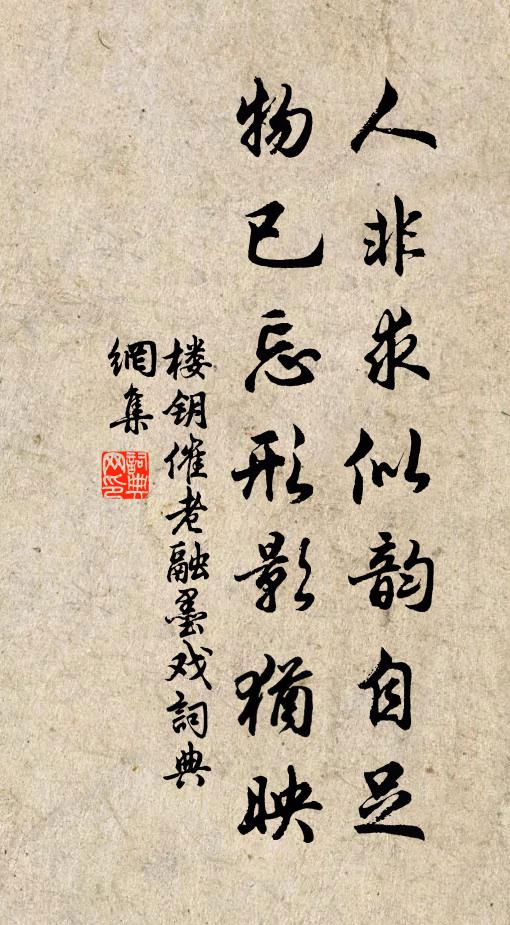 人非求似韵自足
物已忘形影犹映
楼钥催老融墨戏词典
網集
詞典
网印